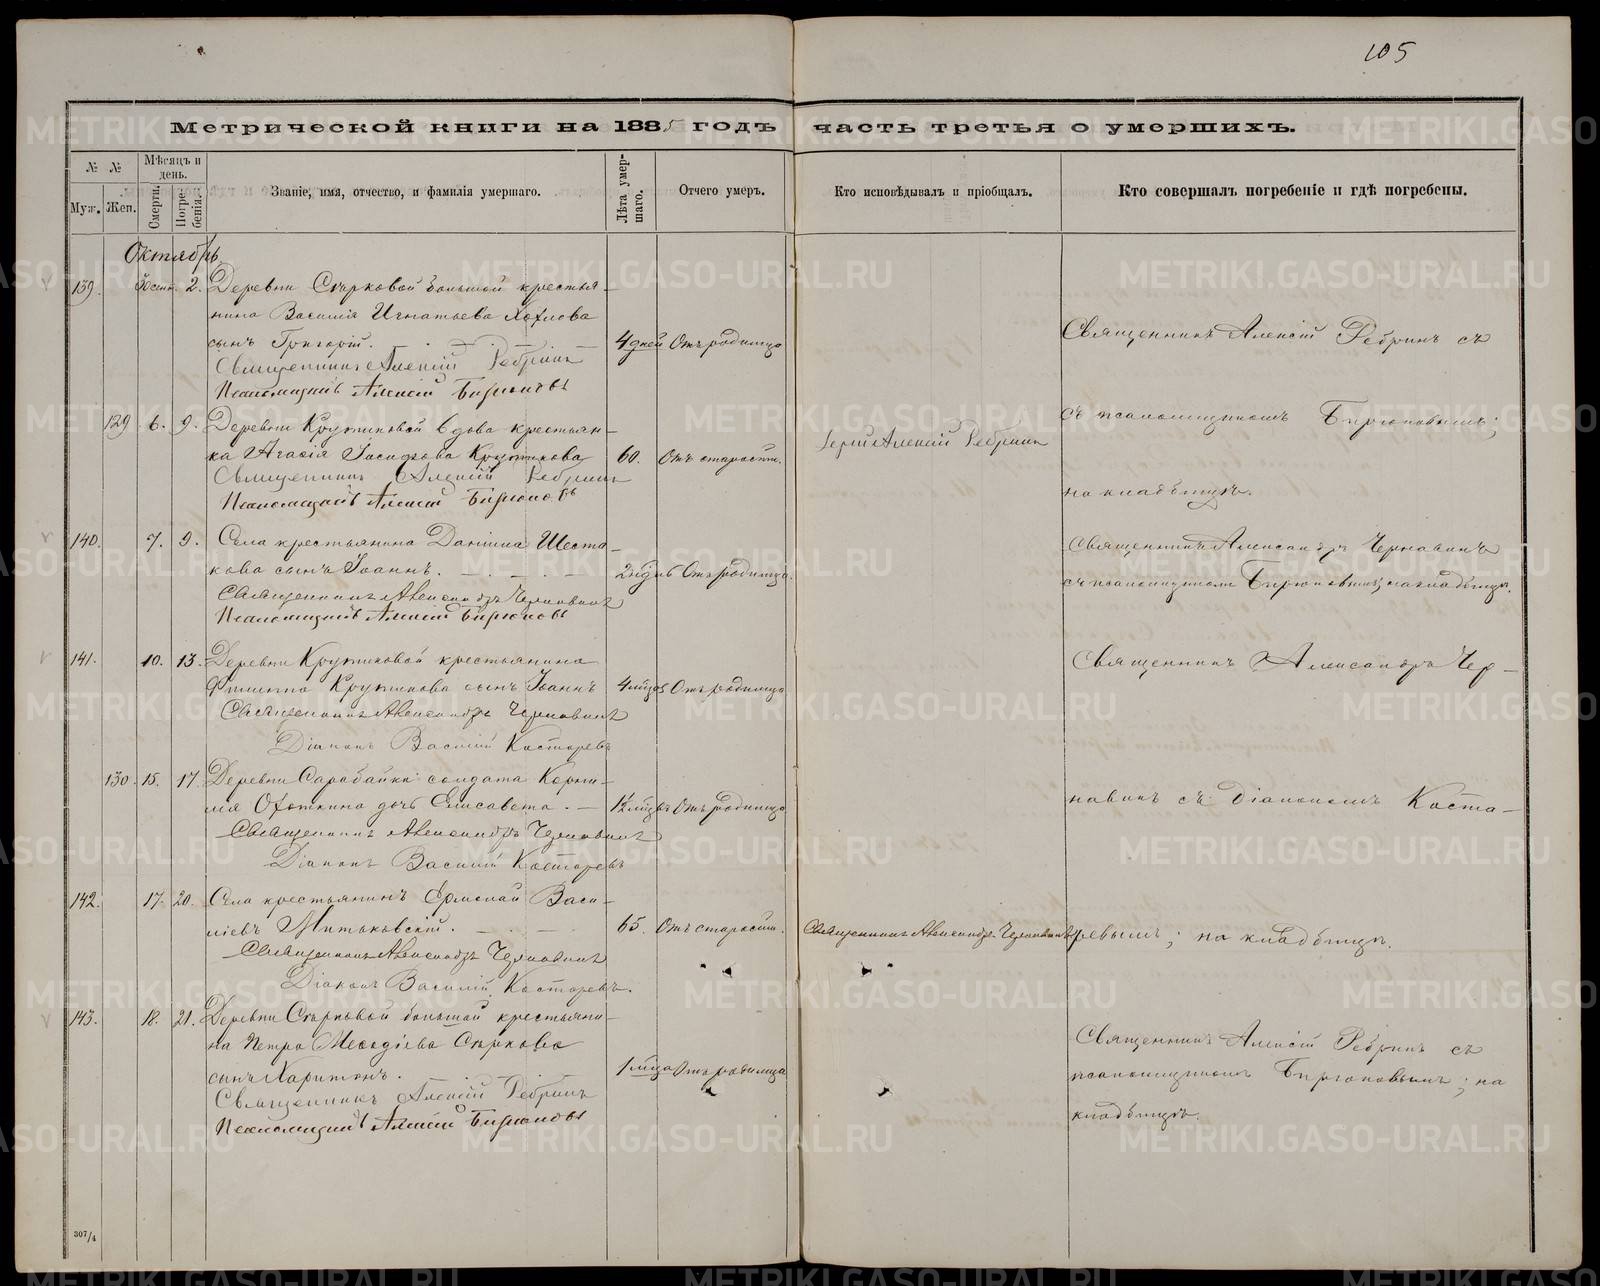 105
Метрической книги на 1885 годъ часть третья о умершихъ.
№ №
Муж.
Жен.
Мѣсяцъ и день.
Смерти.
Погребенія.
Званіе, имя, отчество, и фамилія умершаго.
Лѣта умершаго.
Отчего умеръ.
Кто исповѣдывалъ и пріобщалъ.
Кто совершалъ погребеніе и гдѣ погребены.
Октябрь
139. 30 сент. 2. Деревни Сырковой большой крестья-
нина Василія Игнатьева Хохлова
сынъ Григорій. 4 дней Отъ родимца
Священникъ Алексій Ребринъ
Псаломщикъ Алексій Бирюковъ
Священникъ Алексій Ребринъ съ
129 6. 9. Деревни Крутиковой вдова крестьян-
ка Крутикова 60. Отъ старости. Іерей Алексій Ребринъ
Священникъ Алексій Ребринъ
Псаломщикъ Алексій Бирюковъ
съ псаломщикомъ Бирюковымъ;
на кладбищѣ.
140. 7. 9. Села крестьянина Даніила Шеста-
кова сынъ Іоаннъ. Отъ родимца.
Священникъ Александръ Чернавинъ
Псаломщикъ Алексій Бирюковъ
Священникъ Александръ Чернавинъ
съ псаломщикомъ Бирюковымъ; на кладбищѣ.
141. 10. 13. Деревни Крутиковой крестьянина
Филиппа Крутикова сынъ Іоаннъ 4 мѣсяц. Отъ родимца
Священникъ Александръ Чернавинъ
Діаконъ Василій Костаревъ
Священникъ Александръ Чер-
130 15. 17. Деревни Сарабайки солдата Корни-
лія Охоткина дочь Елисавета. Отъ родимца
Священникъ Александръ Чернавинъ
Діаконъ Василій Костаревъ
навинъ съ діакономъ Коста-
142. 17. 20. Села крестьянинъ Ермолай Васи-
ліевъ Митьковскій. 65. Отъ старости. Священникъ Александръ Чернавинъ
Священникъ Александръ Чернавинъ
Діаконъ Василій Костаревъ.
ревымъ; на кладбищѣ.
143. 18. 21. Деревни Сырковой большой крестьяни-
на Петра Меѳодіева Сыркова
сынъ Харитонъ. 1 мѣсяца Отъ родимца
Священникъ Алексій Ребринъ
Псаломщикъ Алексій Бирюковъ
Священникъ Алексій Ребринъ съ
псаломщикомъ Бирюковымъ; на
кладбищѣ.
307/4
METRIKI.GASO-URAL.RU